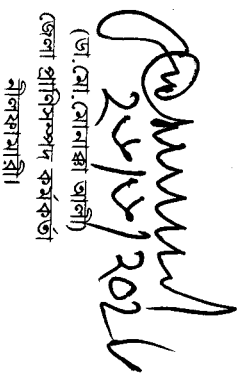 (ডা.মো.মোনাক্কা আলী)
জেলা প্রাণিসম্পদ কর্মকর্তা
নীলফামারী।